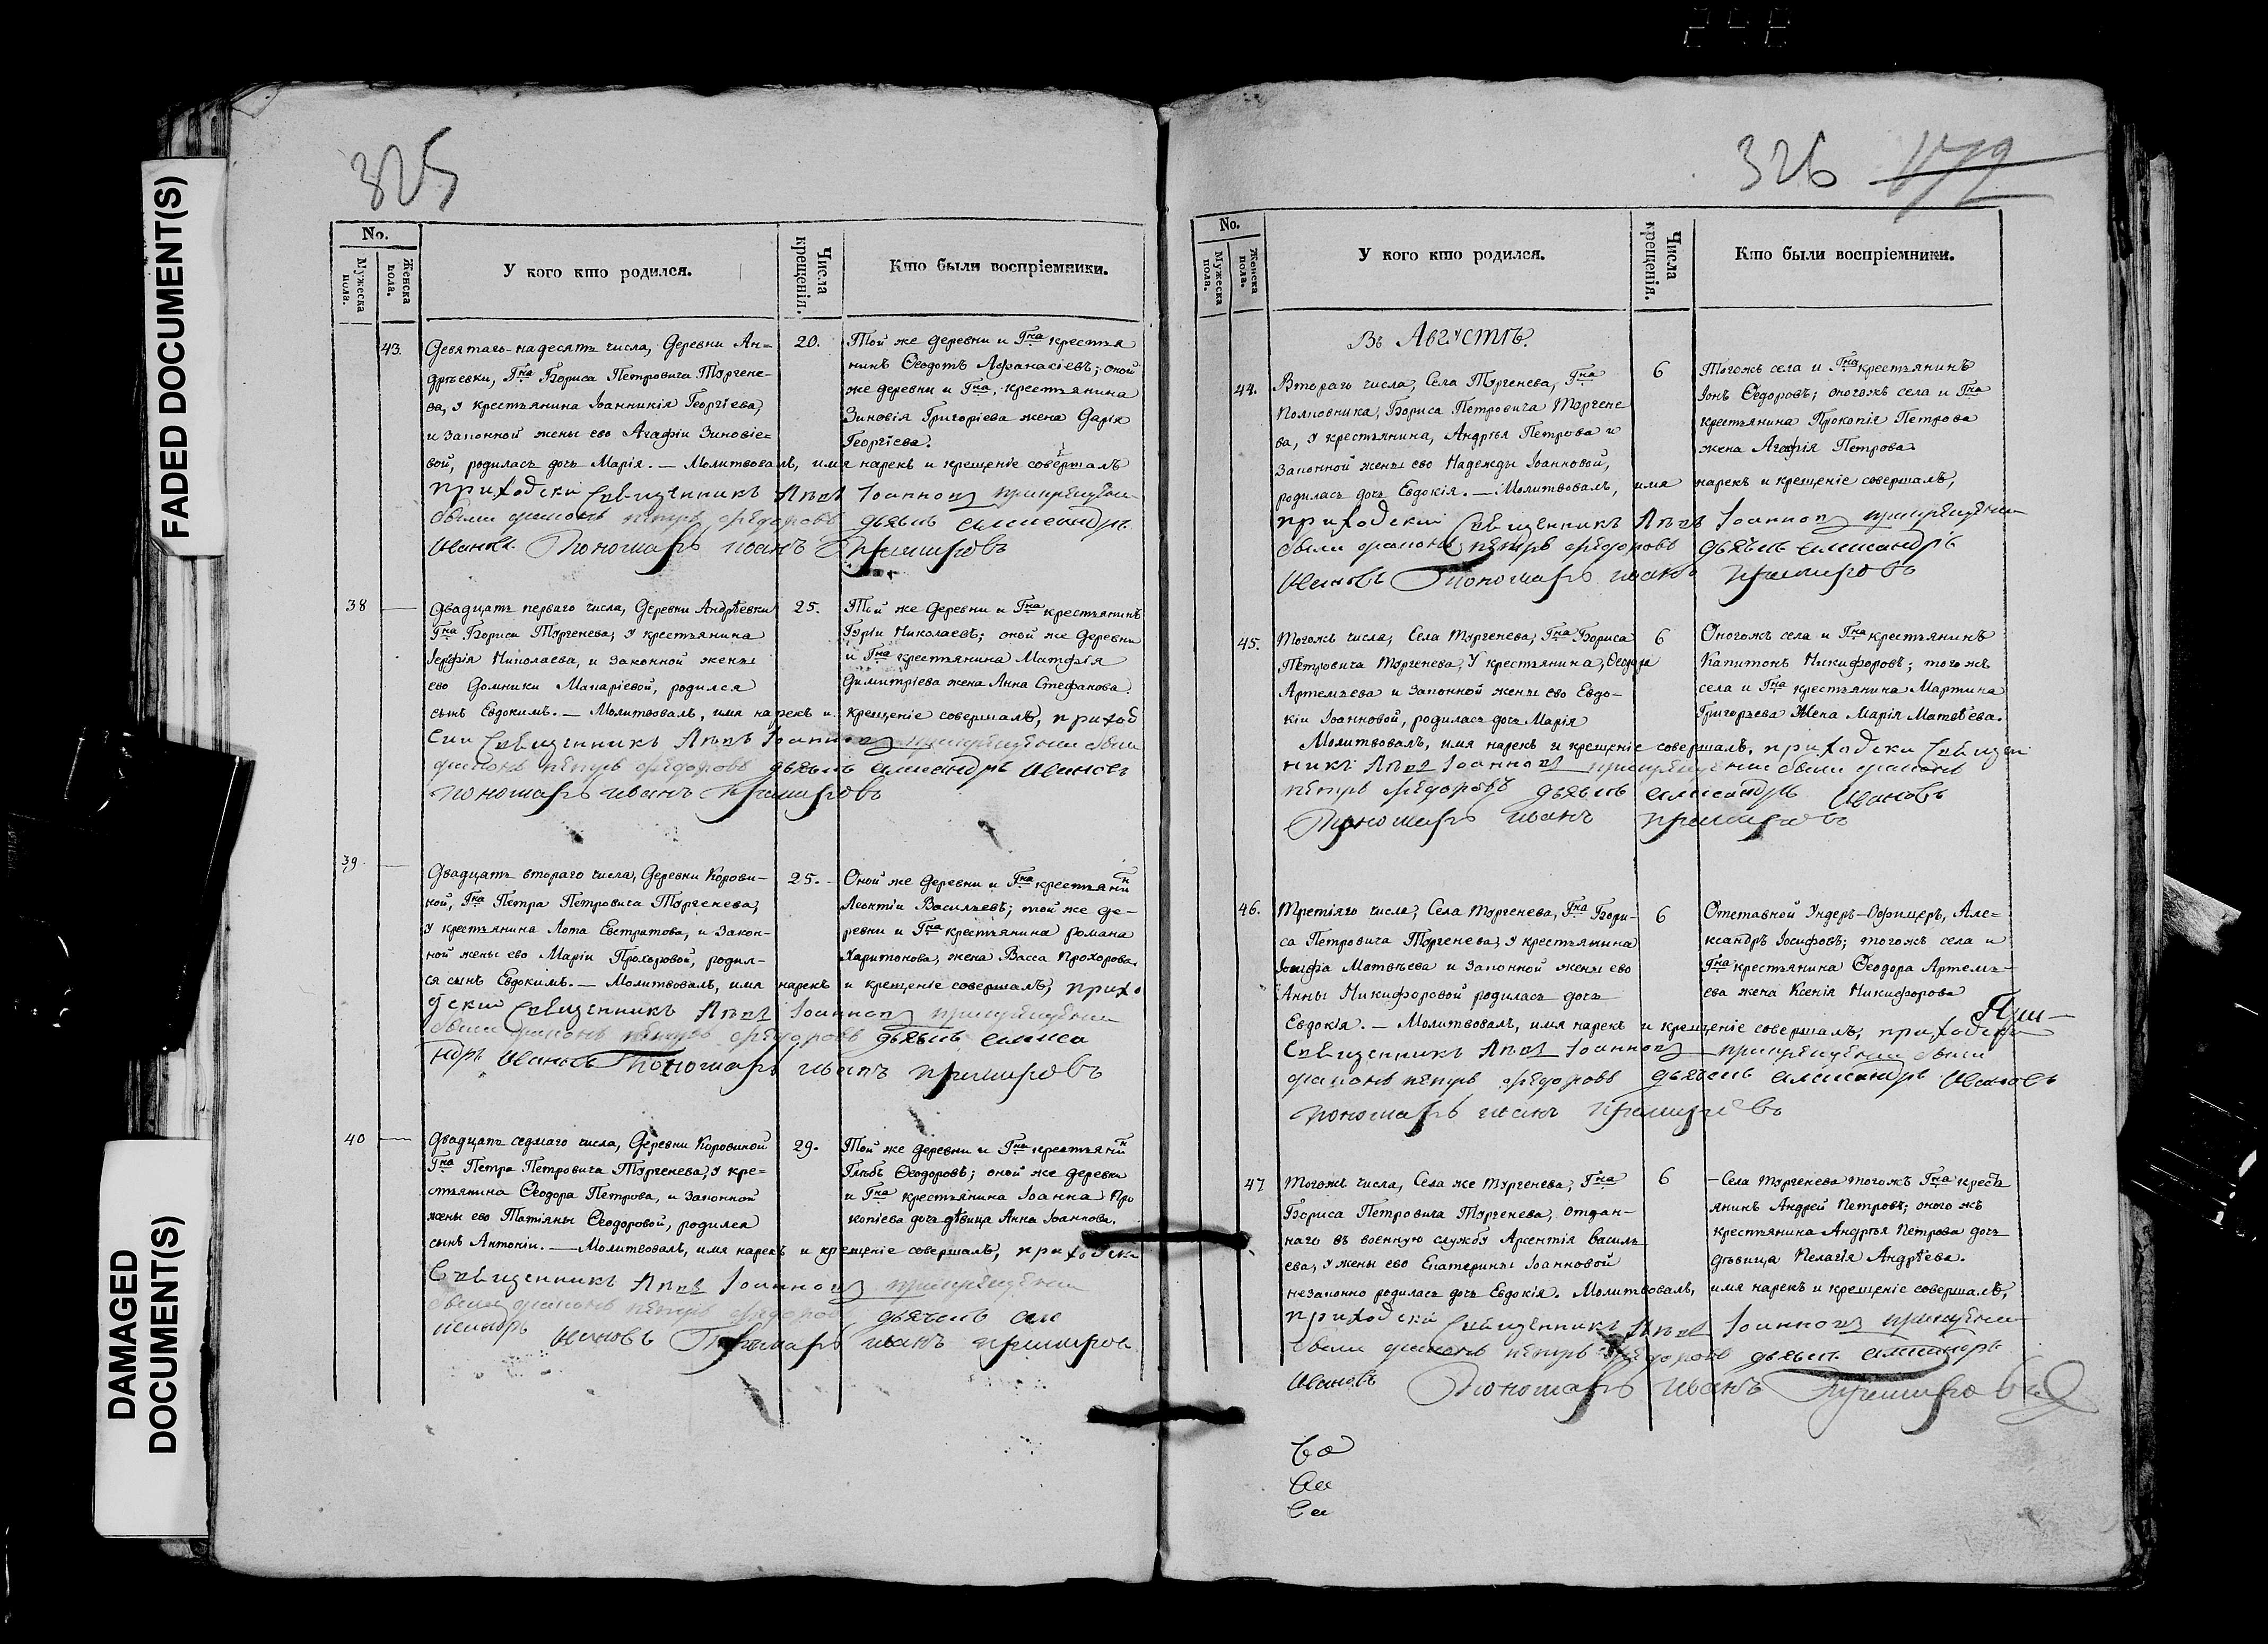 248
FADED DOCUMENT(S)
DAMAGED
DOCUMENT(S)
325
No.
Мужеска пола.
Женска пола.
У кого кто родился.
Числа крещенія.
Кто были воспріемники.
43.
Девятаго-надесять числа, Деревни Ан=
дрѣевки, Гна Бориса Петровича Тургене-
ва, у крестьянина Іоанникія Георгіева,
и законной жены ево Агафіи Зиновіе=
вой, родилась дочь Марія. — Молитвовалъ, имя нарекъ и крещеніе совершалъ
20.
Той же деревни и Гна крестья
нинъ Ѳеодотъ Афанасіевъ; оной
же деревни и Гна, крестьянина
Зиновія Григоріева жена Дарія
Георгіева.
приходски Священникъ Іоанновъ
были дьяконъ петръ федоровъ дьячекъ александръ
Ивановъ Пономарь иванъ
38
Двадцать перваго числа, Деревни Андрѣевки
Гна Бориса Тургенева, у крестьянина
Николаева, и законной жены
ево Домники Макаріевой, родился
сынъ Евдокимъ. — Молитвовалъ, имя нарекъ и крещеніе совершалъ, приход
25.
Той же деревни и Гна крестьянинъ
Гурій Николаевъ; оной же деревни
и Гна крестьянина Матфія
Димитріева жена Анна Стефанова.
ски Священникъ Іоанновъ были
дьяконъ петръ федоровъ дьячекъ александръ Ивановъ
пономарь иванъ
39
Двадцать втораго числа, Деревни Корови-
ной, Гна Петра Петровича Тургенева,
у крестьянина Лота Евстратова, и закон-
ной жены ево Маріи Прохоровой, родил-
ся сынъ Евдокимъ. — Молитвовалъ, имя нарекъ и крещеніе совершалъ, прихо
25.
Оной же деревни и Гна крестьянинъ
Леонтій Васильевъ; той же де-
ревни и Гна крестьянина Романа
Харитонова, жена Васса Прохорова.
дский Священникъ Іоанновъ
были дьяконъ петръ федоровъ дьячекъ алекса
ндръ Ивановъ Пономарь иванъ
40
Двадцать седмаго числа, Деревни Коровиной
Гна Петра Петровича Тургенева, у кре=
стьянина Ѳеодора Петрова, и законной
жены ево Татіяны Ѳеодоровой, родился
сынъ Антоній. — Молитвовалъ, имя нарекъ и крещеніе совершалъ, приходски
29.
Той же деревни и Гна крестьянинъ
Глѣбъ Ѳеодоровъ; оной же деревни
и Гна крестьянина Іоанна Про
копіева дочь дѣвица Анна Іоаннова.
Священникъ Іоанновъ
были дьяконъ петръ федоровъ дьячекъ але
ксандръ Ивановъ Пономарь иванъ
326
172
No.
Мужеска пола.
Женска пола.
У кого кто родился.
Числа крещенія.
Кто были воспріемники.
Въ Августѣ.
44.
Втораго числа, Села Тургенева, Гна
Полковника, Бориса Петровича Тургене
ва, у крестьянина, Андрѣя Петрова и
законной жены ево Надежды Іоанновой,
родилась дочь Евдокія. — Молитвовалъ, имя нарекъ и крещеніе совершалъ,
6
Тогожъ села и Гна крестьянинъ
Іонъ Ѳедоровъ; оногожъ села и Гна
крестьянина Прокопія Петрова
жена Агафія Петрова
приходский Священникъ Іоанновъ
были дьяконъ петръ федоровъ дьячекъ александръ
Ивановъ Пономарь иванъ
45.
Тогожъ числа, Села Тургенева, Гна Бориса
Петровича Тургенева, у крестьянина, Ѳеодора
Артемьева и законной жены ево Евдо-
кіи Іоанновой, родилась дочь Марія
Молитвовалъ, имя нарекъ и крещеніе совершалъ, приходски Священ
6
Оногожъ села и Гна крестьянинъ
Капитонъ Никифоровъ; тогожъ
села и Гна крестьянина Мартина
Григорьева жена Марія Матвѣева.
никъ Іоанновъ были дьяконъ
петръ федоровъ дьячекъ александръ Ивановъ
Пономарь иванъ
46.
Третіяго числа, Села Тургенева, Гна Бори-
са Петровича Тургенева, у крестьянина
Іосифа Матвѣева и законной жены ево
Анны Никифоровой родилась дочь
Евдокія. — Молитвовалъ, имя нарекъ и крещеніе совершалъ, приходски
6
Отставной Ундеръ-Офицеръ, Але=
ксандръ Іосифовъ; тогожъ села и
Гна крестьянина Ѳеодора Артемь-
ева жена Ксенія Никифорова
Священникъ Іоанновъ были
дьяконъ петръ федоровъ дьячекъ александръ Ивановъ
пономарь иванъ
47
Тогожъ числа, Села же Тургенева, Гна
Бориса Петровича Тургенева, отдан-
наго въ военную службу Арсентія Василь
ева, у жены ево Екатерины Іоанновой
незаконно родилась дочь Евдокія. Молитвовалъ, имя нарекъ и крещеніе совершалъ,
6
- Села Тургенева тогожъ Гна кресть
янинъ Андрей Петровъ; оного жъ
крестьянина Андрѣя Петрова дочь
дѣвица Пелагія Андрѣева.
приходский Священникъ Іоанновъ
были дьяконъ петръ федоровъ дьячекъ александръ
Ивановъ Пономарь иванъ